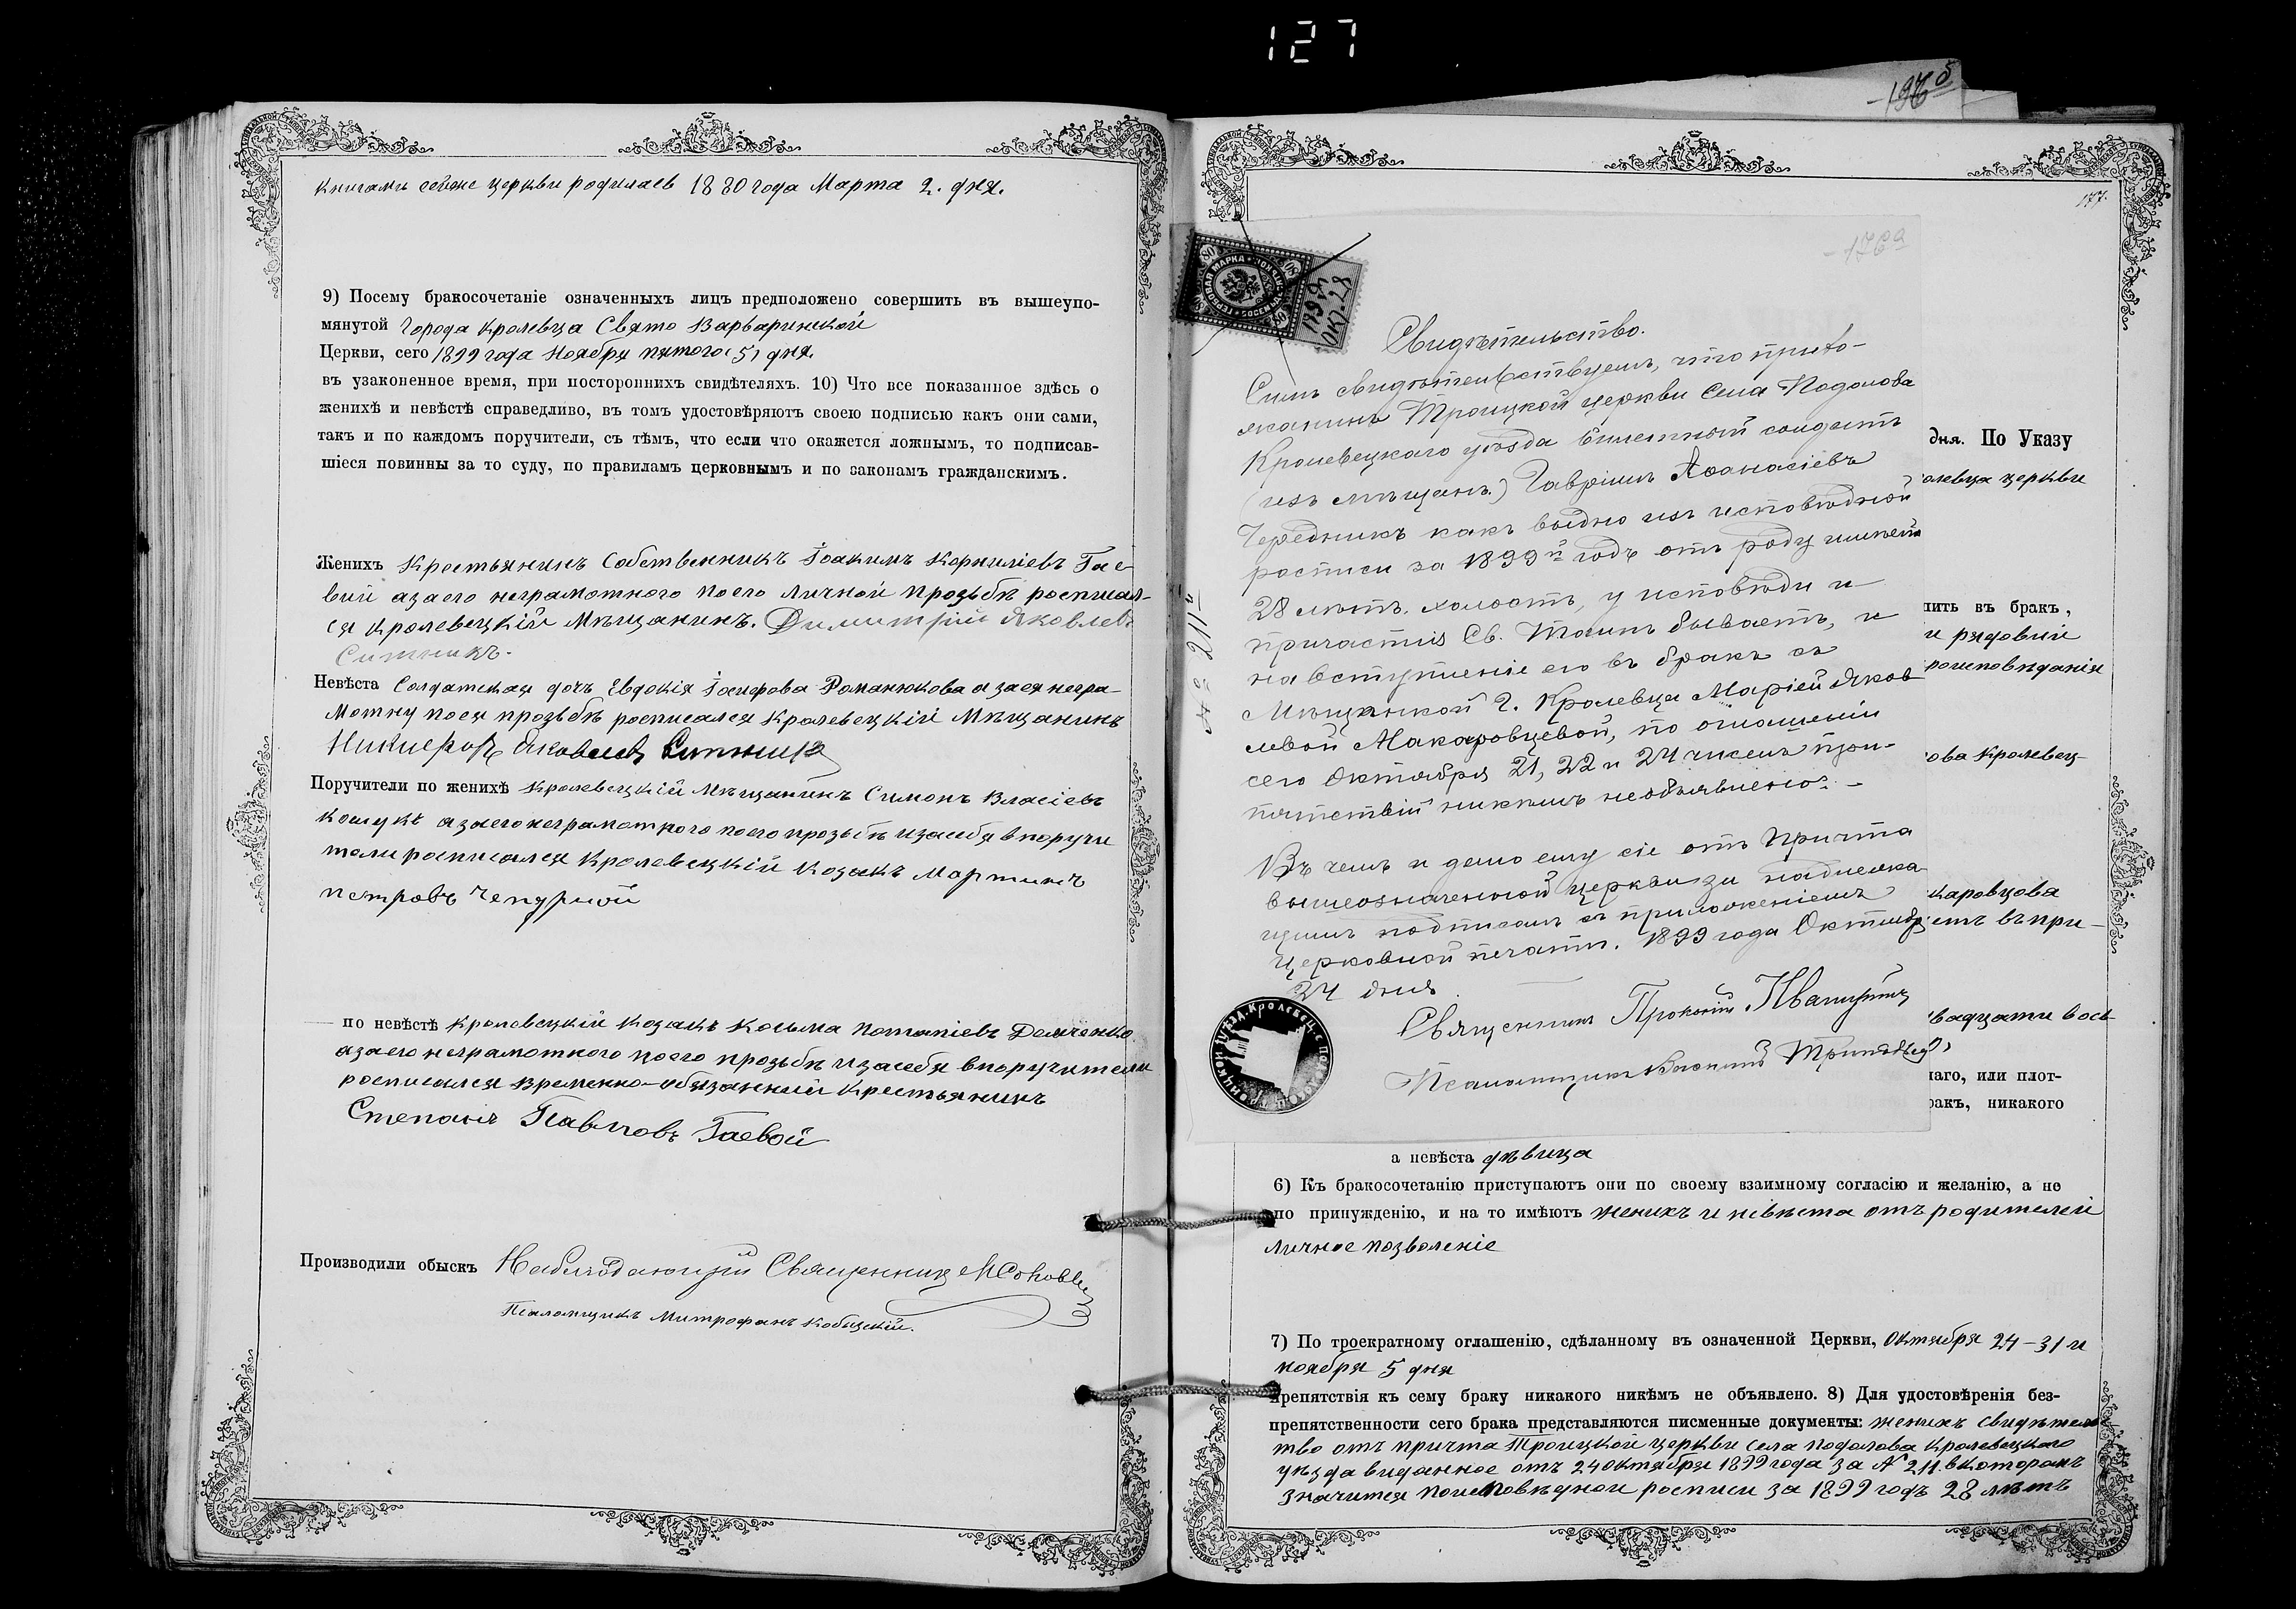 127
книгамъ сейже церкви родилась 1880 года Марта 2. дня.
9) Посему бракосочетаніе означенныхъ лицъ предположено совершить въ вышеупо-
мянутой Города Кролевца Свято Варваринской
Церкви, сего 1899 года Ноября пятого (5) дня.
въ узаконенное время, при постороннихъ свидѣтеляхъ. 10) Что все показанное здѣсь о
женихѣ и невѣстѣ справедливо, въ томъ удостовѣряютъ своею подписью какъ они сами,
такъ и по каждомъ поручители, съ тѣмъ, что если что окажется ложнымъ, то подписав-
шіеся повинны за то суду, по правиламъ церковнымъ и по законамъ гражданскимъ.
Женихъ Крестьянинъ Собственникъ Іоакимъ Корниліевъ Гае-
вий а за его неграмотного по его личной прозьбѣ росписал-
ся Кролевецкій Мѣщанинъ. Димитрій Яковлевъ
Ситникъ.
Невѣста Солдатская дочъ Евдокія Іосифова Романюкова а за ея негра-
мотну по ея прозьбѣ росписался Кролевецкій Мѣщанинъ
Никифоръ Яковлевъ Ситникъ
Поручители по женихѣ Кролевецкій Мѣщанинъ Симонъ Власіевъ
а за его неграмотного по его прозьбѣ и за себя в поручи
тели росписался Кролевецкій Козакъ Мартинъ
Петровъ Чепурной
по невѣстѣ Кролевецкій Козакъ Косьма Потапіевъ Демченко
а за его неграмотного по его прозьбѣ и за себя в поручители
росписался временно-обязанный Крестьянинъ
Степанъ Павловъ Гаевой
Производили обыскъ Наблюдающій Священникъ
Псаломщикъ Митрофанъ Кобицкій.
176б
177.
176а
ГЕРБОВАЯ МАРКА
80
1899
ОКТ 24
№ 211
Свидѣтельство.
Симъ свидѣтельствуемъ, что прихо-
жанинъ Троицкой церкви села Подолова
Кролевецкаго уѣзда билетный солдатъ
(изъ мѣщанъ) Гавріилъ Аѳанасіевъ
Чередникъ какъ видно изъ исповѣдной
росписи за 1899й годъ отъ роду имѣетъ
28 лѣтъ, холостъ, у исповѣди и
причастія Св. Таинъ бываетъ, и
на вступленіе его въ бракъ съ
Мѣщанкой г. Кролевца Маріей Яков
левой Макаровцевой, по оглашеніи
сего Октября 21, 22 и 24 чиселъ преп-
пятствій никѣмъ не объявлено. –
Въ чемъ и дано ему сіе отъ Причта
вышеозначенной церкви за надлежа
щимъ подписомъ съ приложеніемъ
церковной печати. 1899 года Октября
24 дня.
Священникъ Прокопій
Псаломщикъ Василій
дня. По Указу
олевца церкви
ить въ бракъ,
и рядовий
роисповѣданія
ова Кролевец-
каровцова
етъ въ при-
вадцати вось
наго, или плот-
ракъ, никакого
а невѣста дѣвица
6) Къ бракосочетанію приступаютъ они по своему взаимному согласію и желанію, а не
по принужденію, и на то имѣютъ женихъ и невѣста отъ родителей
личное позволеніе
7) По троекратному оглашенію, сдѣланному въ означенной Церкви, Октября 24–31 и
ноября 5 дня
препятствія къ сему браку никакого никѣмъ не объявлено. 8) Для удостовѣренія без-
препятственности сего брака представляются писменные документы: женихъ свидѣтель
тво отъ причта Троицкой церкви села Подолова Кролевецкаго
уѣзда виданное отъ 24 октября 1899 года за № 211. в которомъ
значится по исповѣдной росписи за 1899 годъ 28 лѣтъ